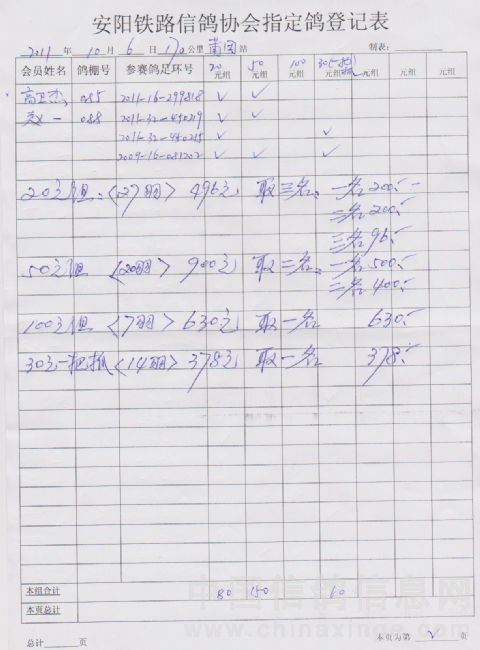 安阳铁路信鸽协会指定鸽登记表
2011年10月6日170公里莆田站 制表:
会员姓名 鸽棚号 参赛鸽足环号 20元组 50元组 100元组 元组 元组 元组
高卫杰 085 2011-16-299818 ✓ ✓
一 088 2011-32-450219 ✓ ✓
✓ ✓
2009-16-081202 ✓ ✓ ✓
20元组:<27羽> 496元 取三名 一名200.-
二名200.-
三名96.-
50元组 <20羽> 900元 取二名 一名500.-
二名400.-
100元组 <7羽> 630元 取一名 630.-
30元一把抓 <14羽> 378元 取一名 378.-
本组合计 80 150 60
本页总计
总计 页 本页为第 页
中国信鸽信息网
www.chinaxinge.com